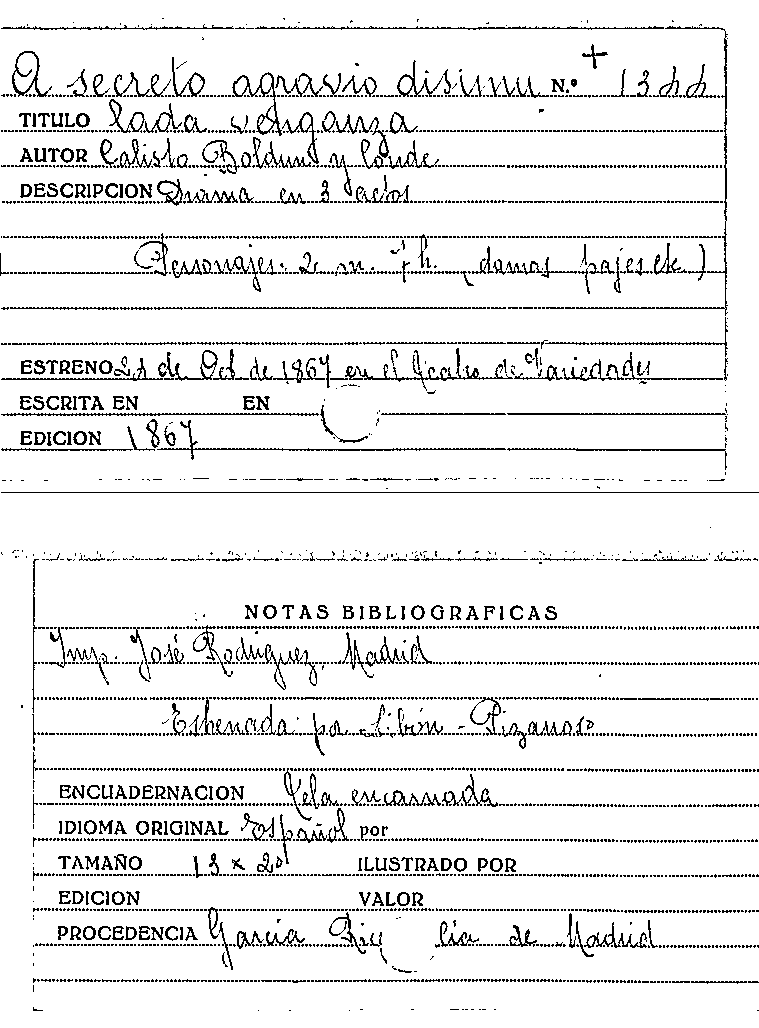 A secreto agravio disimu N.º + 1344
TITULO lada venganza
AUTOR Calisto Boldun y Conde
DESCRIPCION Drama en 3 actos
Personajes. 2 m. 7 h. (damas pajes etc.)
ESTRENO 21 de Oct de 1867 en el Teatro de Variedades
ESCRITA EN EN
EDICION 1867
NOTAS BIBLIOGRAFICAS
Imp. José Rodriguez, Madrid
Estrenada por -Pizarroso
ENCUADERNACION Tela encarnada
IDIOMA ORIGINAL Español por
TAMAÑO 13 x 20 ILUSTRADO POR
EDICION VALOR
PROCEDENCIA Garcia Rico Cia de Madrid